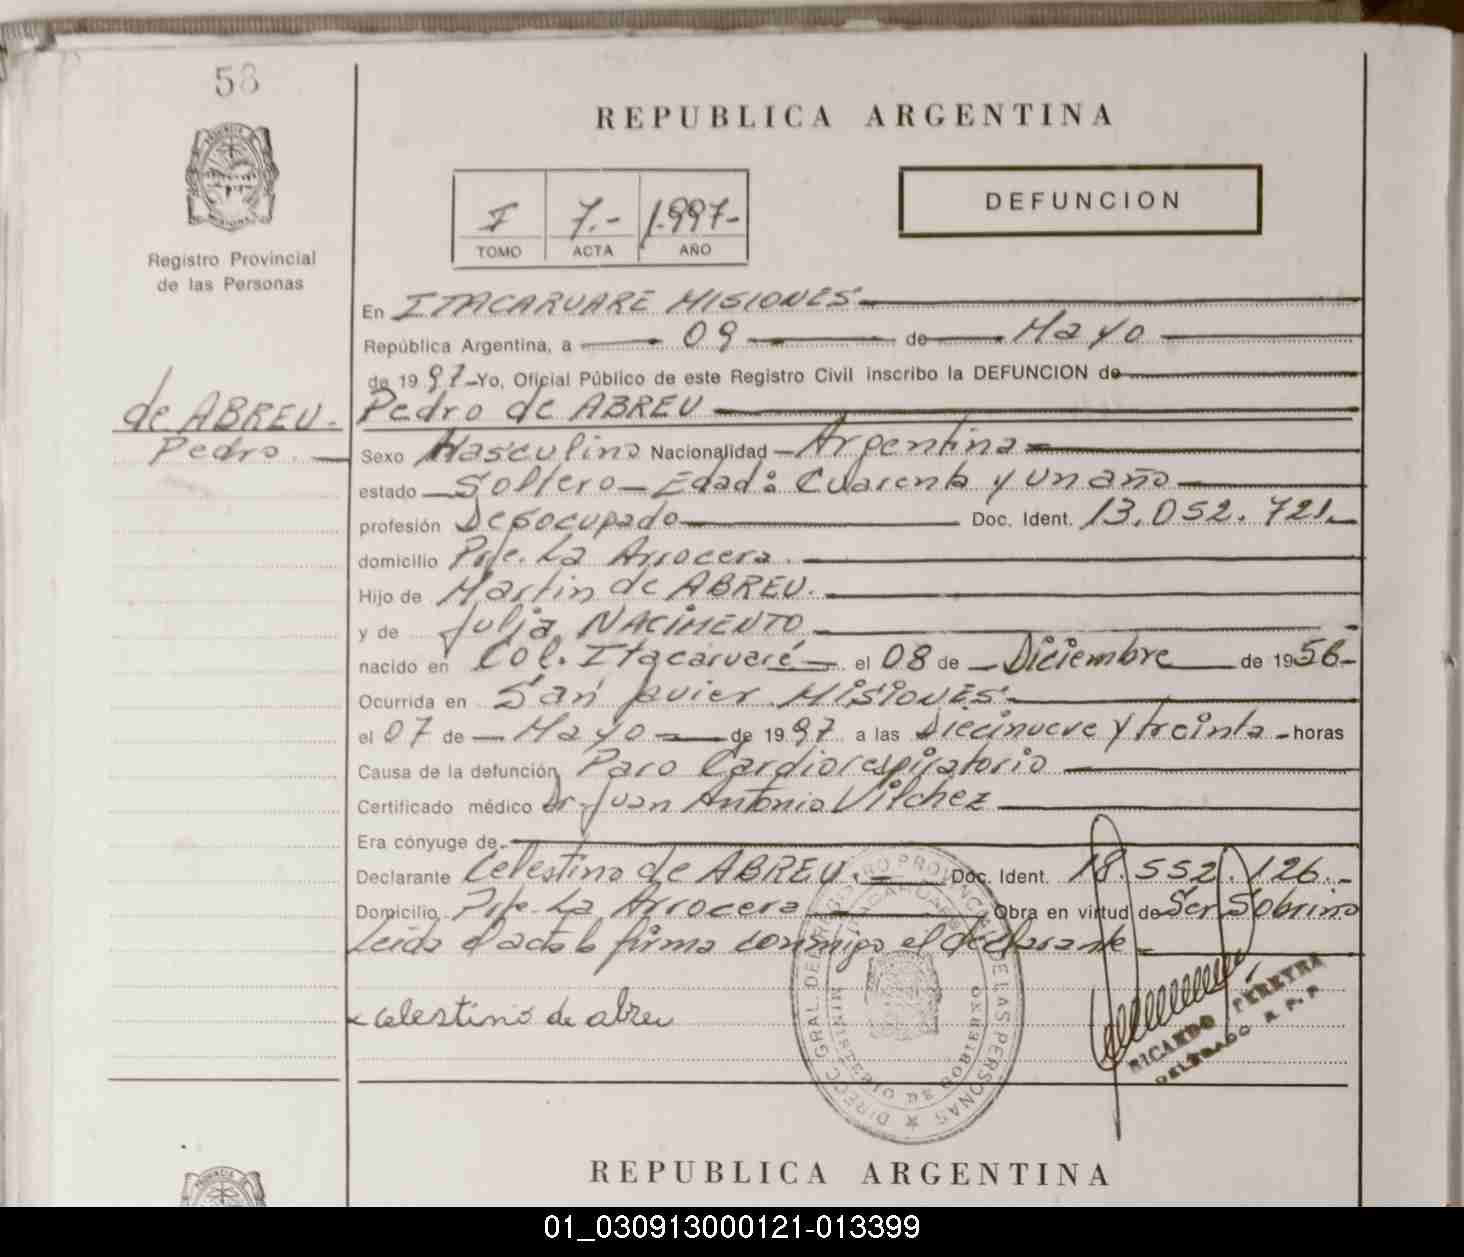 58
REPUBLICA ARGENTINA
I 7.- 1.997-
TOMO ACTA AÑO
DEFUNCION
Registro Provincial
de las Personas
de ABREU.
Pedro.
En ITACARUARE MISIONES
República Argentina, a 09 de Mayo
de 1997 Yo, Oficial Público de este Registro Civil inscribo la DEFUNCION de
Pedro de ABREU
Sexo Masculino Nacionalidad Argentina
estado Soltero - Edad: Cuarenta y un año
profesión Desocupado Doc. Ident. 13.052.721
domicilio Pje. La Arrocera.
Hijo de Martin de ABREU.
y de Julia NACIMENTO
nacido en Col. Itacaruaré el 08 de Diciembre de 1956-
Ocurrida en San Javier MISIONES
el 07 de Mayo de 1997 a las Diecinueve y treinta - horas
Causa de la defunción Paro Cardiorespiratorio
Certificado médico Dr. Juan Antonio Vilchez
Era cónyuge de
Declarante Celestino de ABREU. Doc. Ident. 18.552.126.-
Domicilio Pje. La Arrocera Obra en virtud de Ser Sobrino
Leida el acta la firma conmigo el declarante
celestino de abreu
DIRECC. GRAL. DEL REGISTRO PROVINCIAL DE LAS PERSONAS
ITACARUARE
MINISTERIO DE GOBIERNO
RICARDO PEREYRA
DELEGADO R.P.P.
REPUBLICA ARGENTINA
01_030913000121-013399